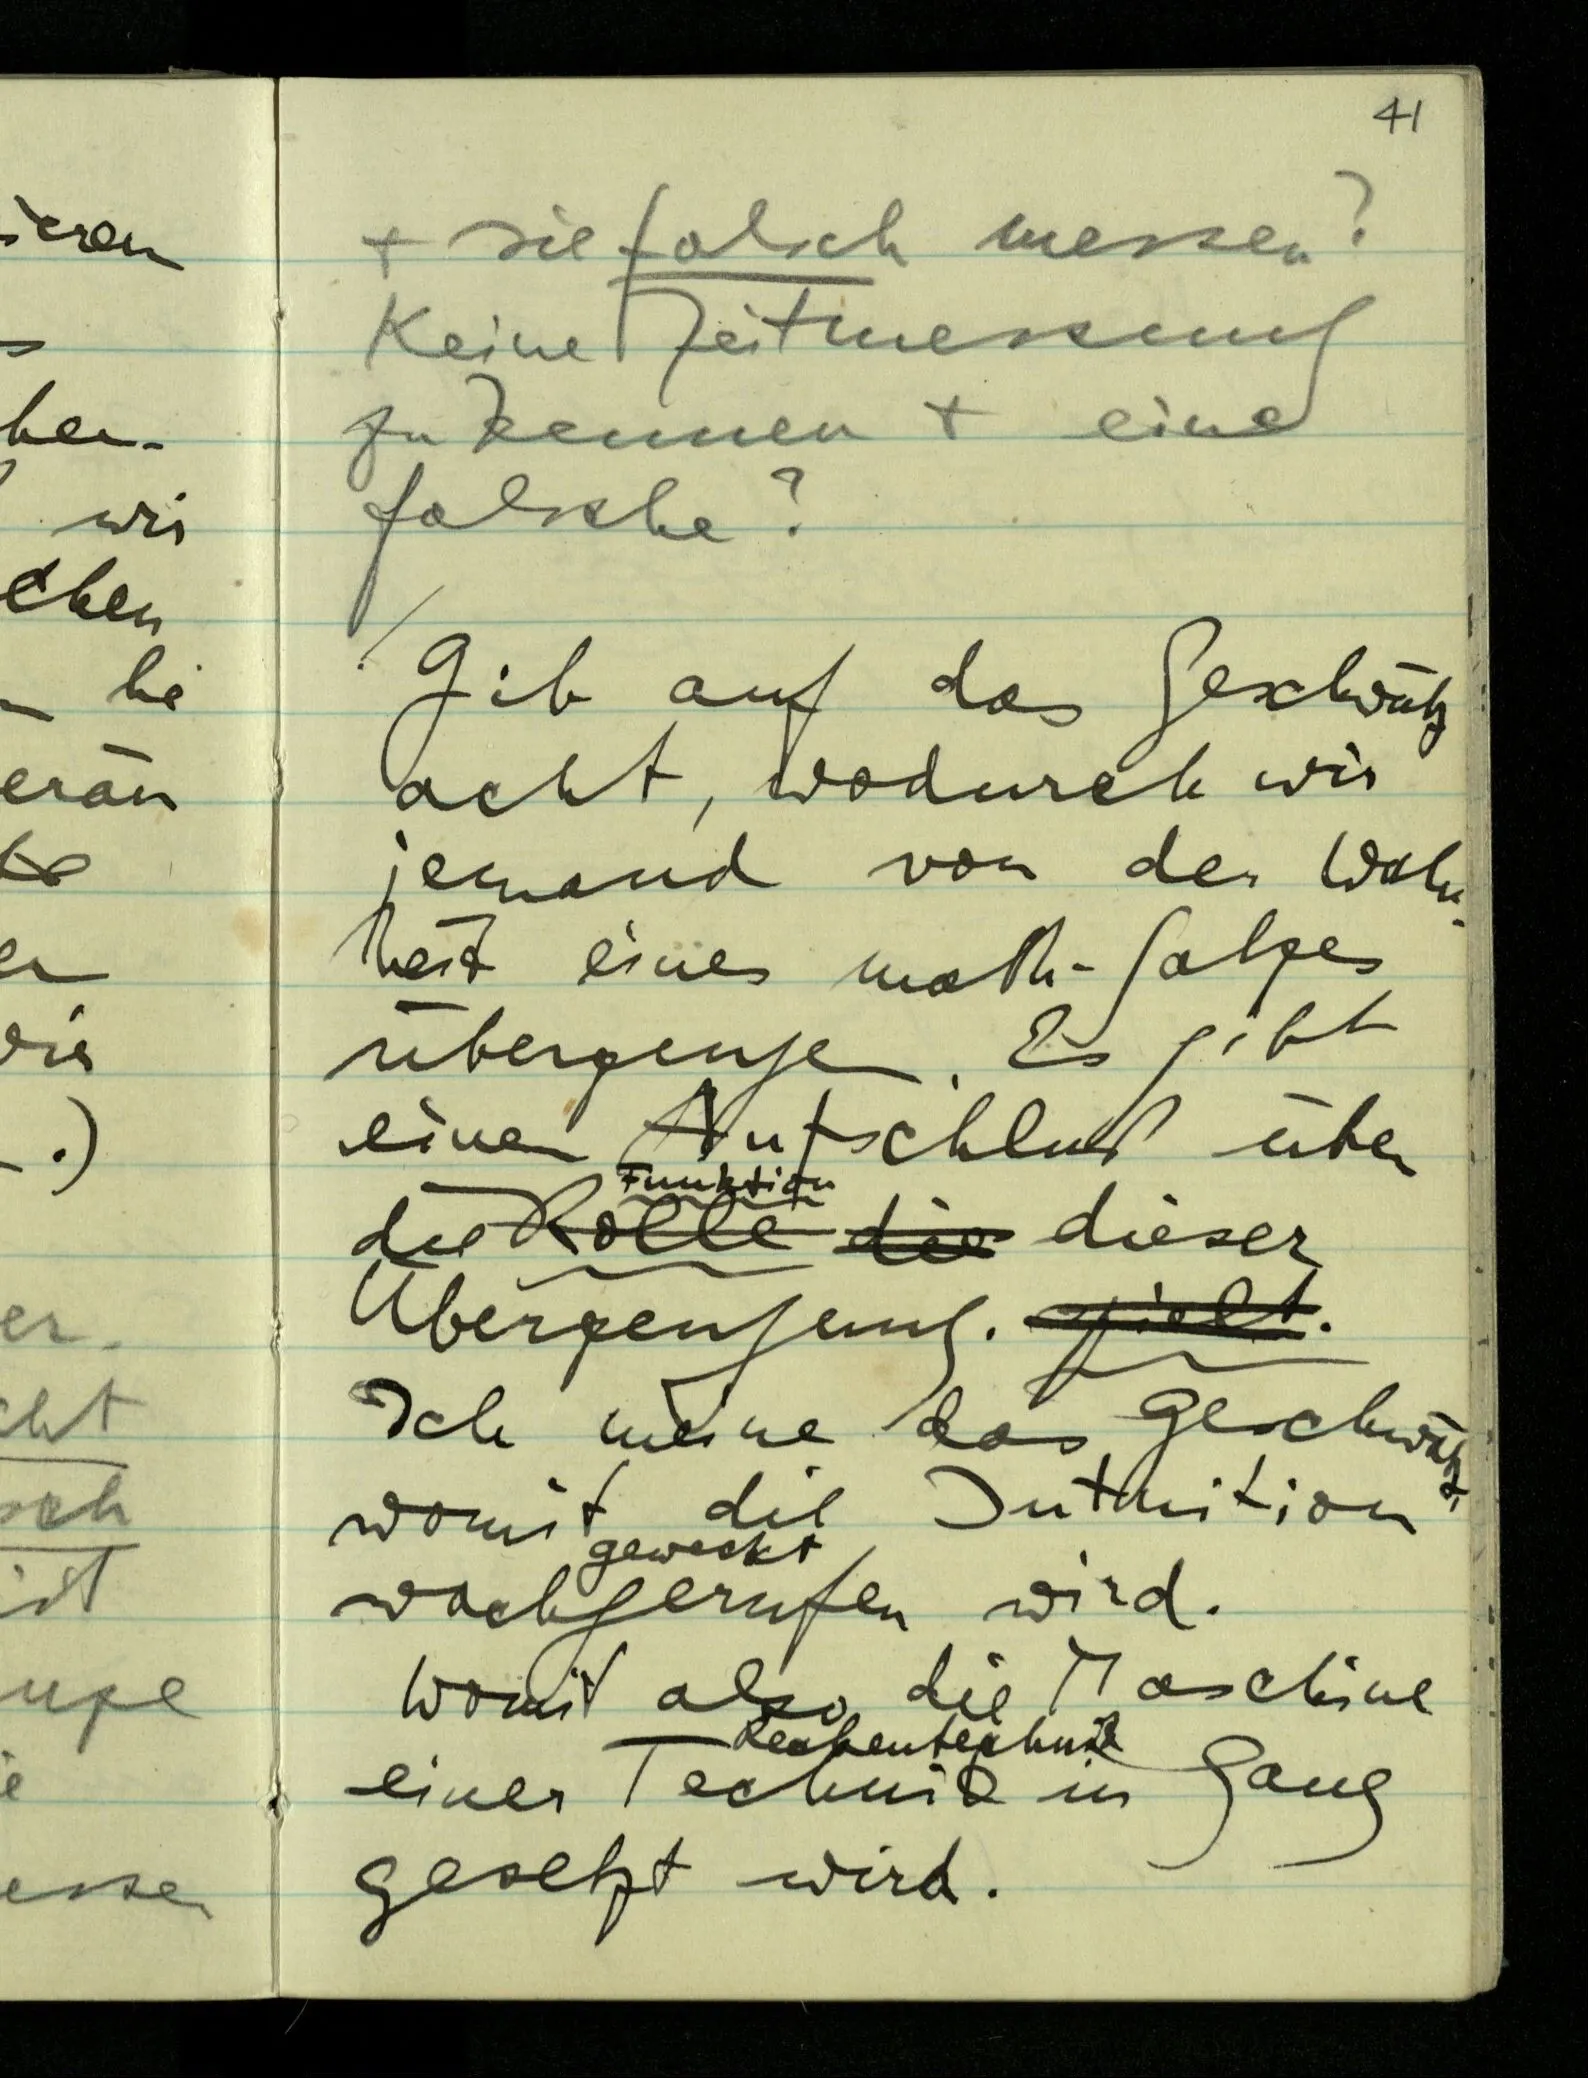 41
+ sie falsch messen?
Keine Zeitmessung
zu kennen + eine
falsche?
Gib auf das Geschwätz
acht, wodurch wir
jemand von der Wahr-
heit eines math. Satzes
überzeugen. Es gibt
einen Aufschluß über
Funktion
die Rolle die dieser
Überzeugung. spielt.
Ich meine das Geschwätz,
womit die Intuition
geweckt
wachgerufen wird.
Womit also die Maschine
Rechentechnik
einer Technik in Gang
gesetzt wird.
ieren
wir
chen
er.
cht
sch
ist
upe
essen